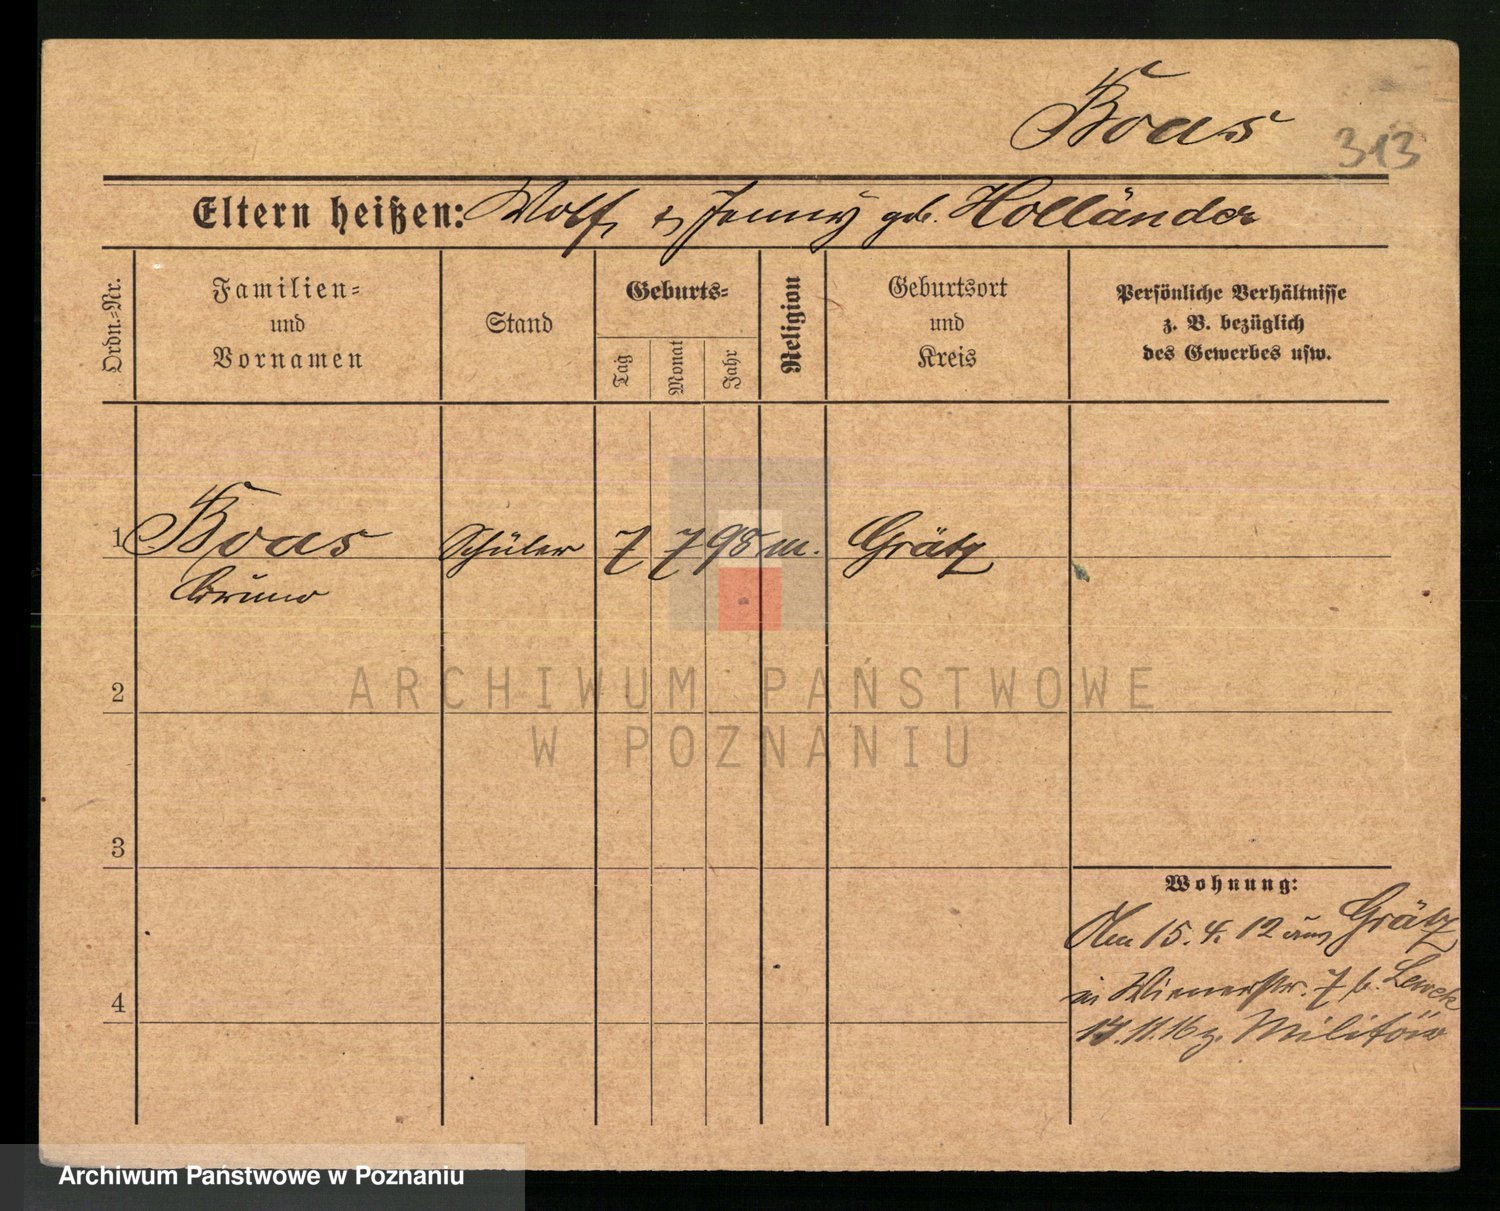 Boas
313
Eltern heißen: Wolf, u. Jenny geb. Holländer
Ordn.-Nr.
Familien-
und
Vornamen
Stand
Geburts-
Tag
Monat
Jahr
Religion
Geburtsort
und
Kreis
Persönliche Verhältnisse
z. B. bezüglich
des Gewerbes usw.
1 Boas Schüler 7 7 98 m. Grätz
Bruno
ARCHIWUM PAŃSTWOWE
W POZNANIU
2
3
4
Wohnung:
Am 15. 4. 12 aus Grätz
in Wienerstr. 7 b.
11.16 z. Militär
Archiwum Państwowe w Poznaniu